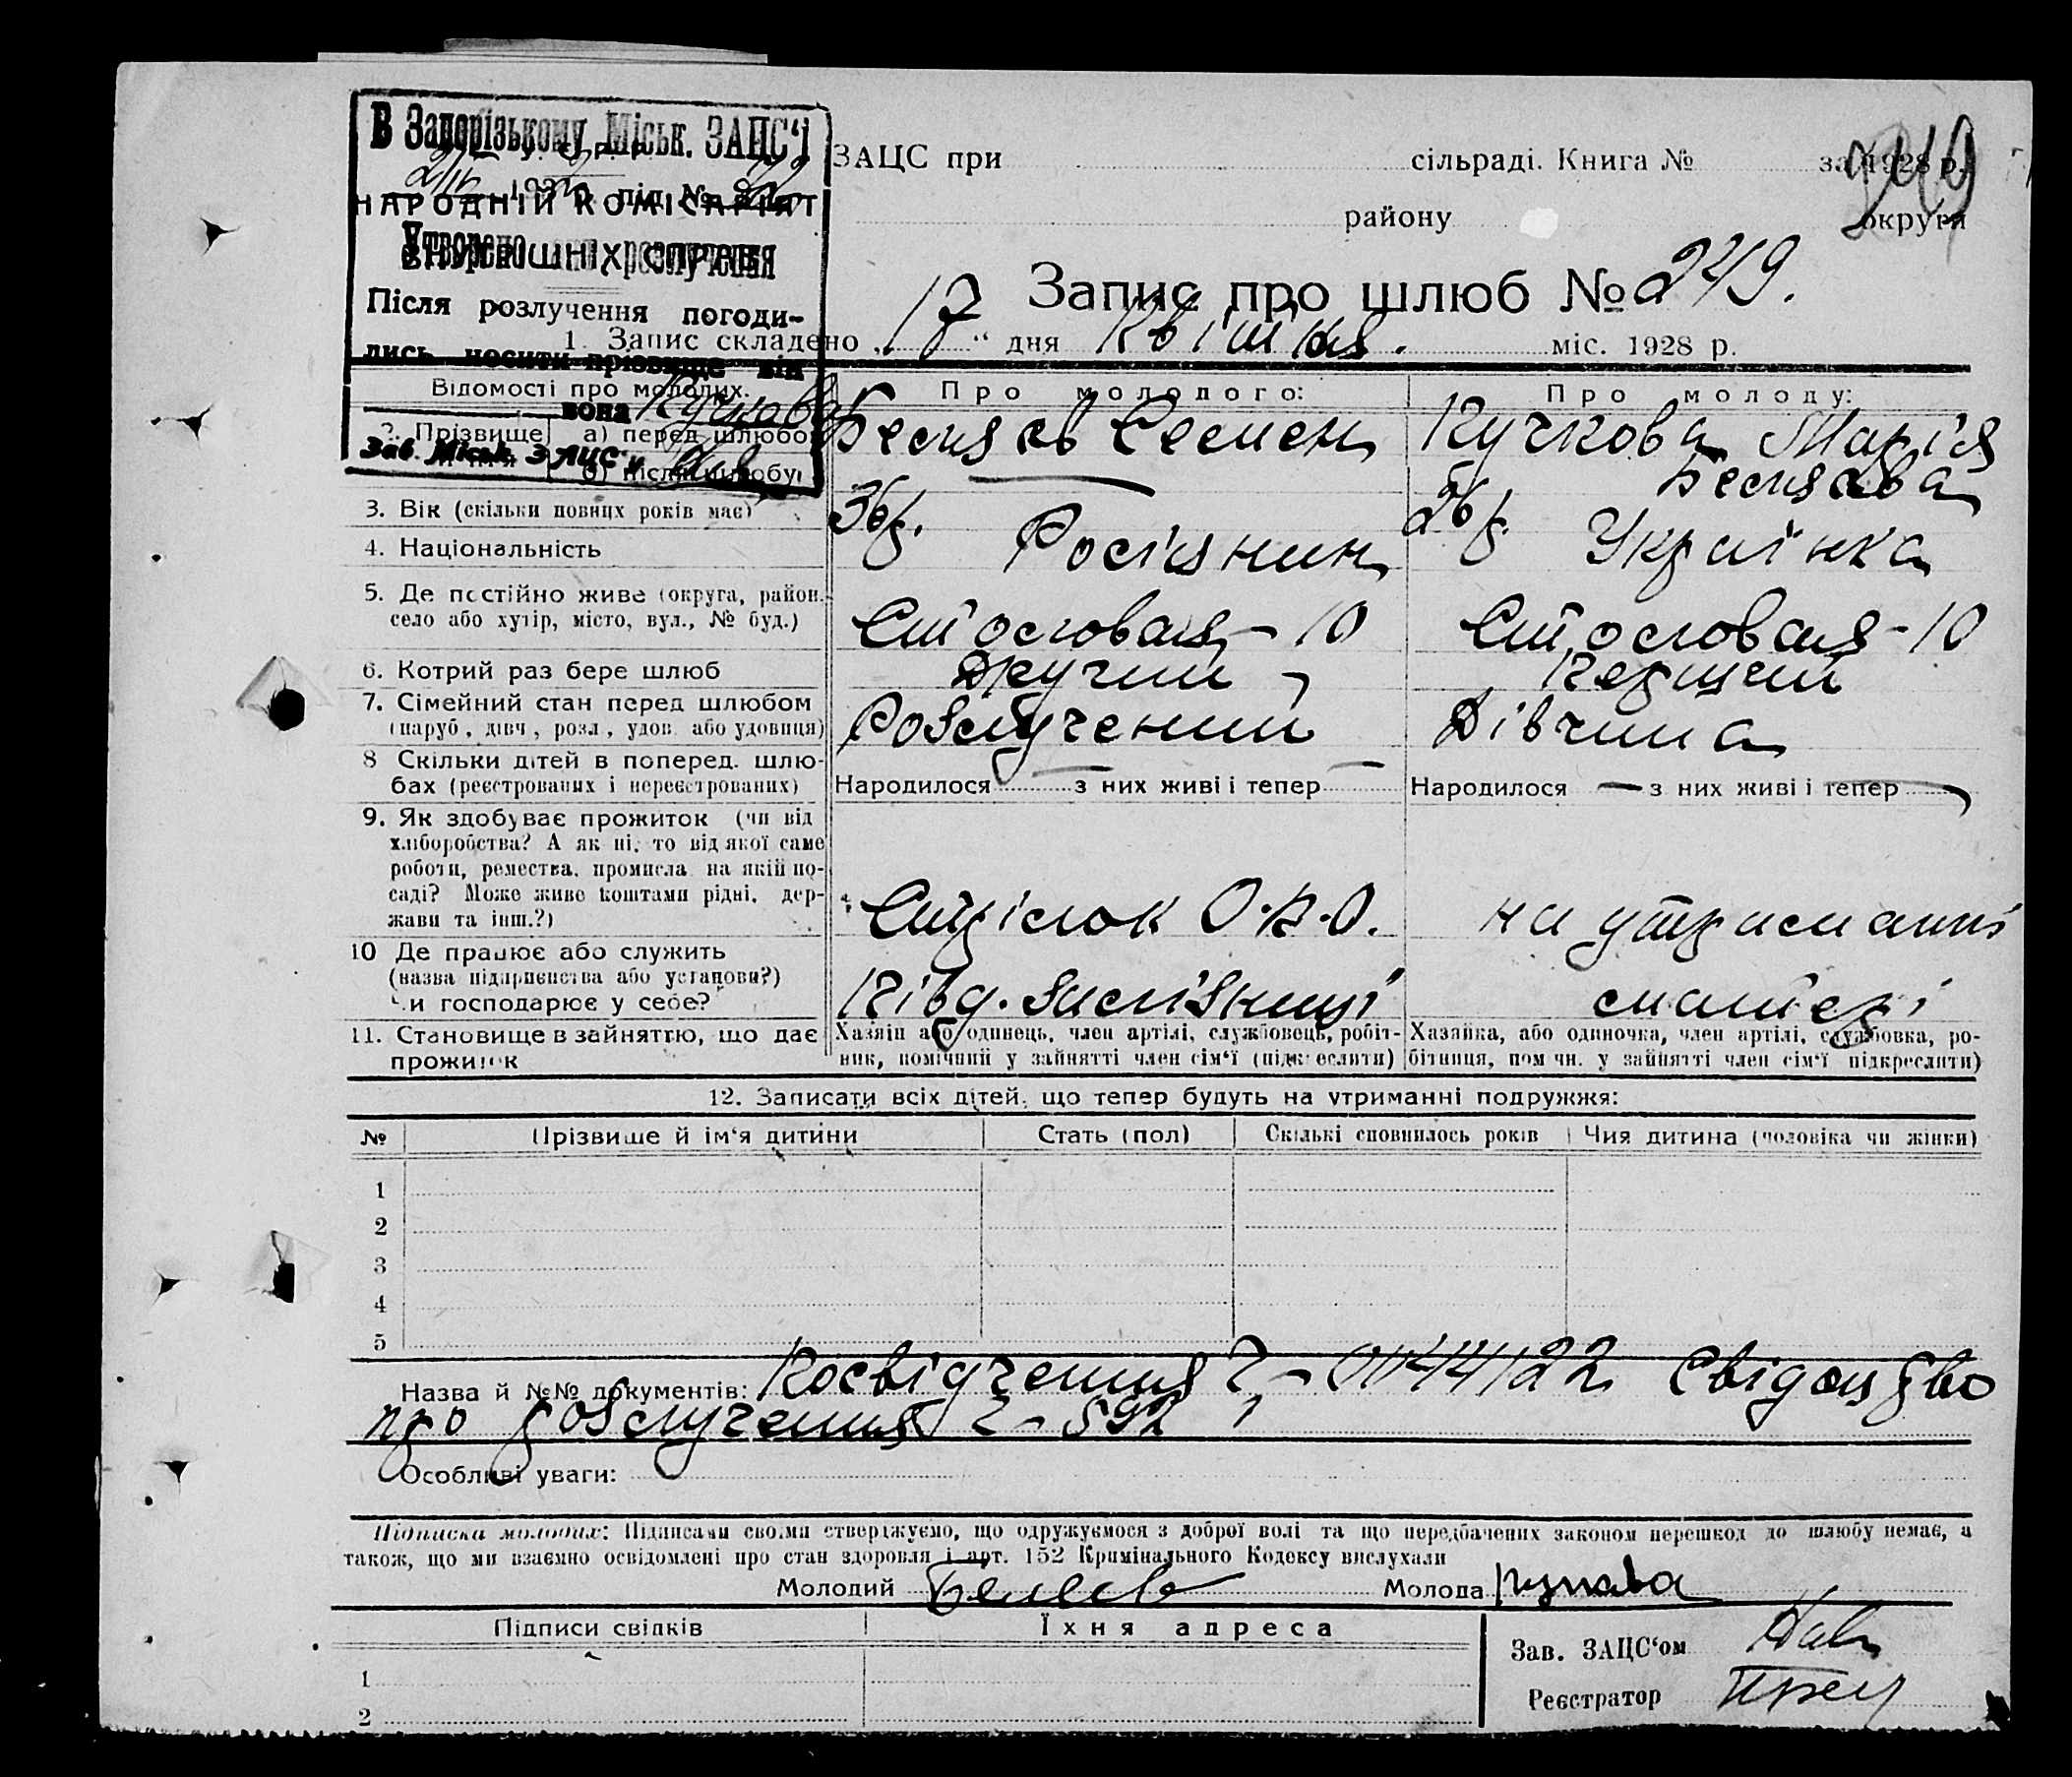 В Запорізькому Міськ. ЗАПС‘і
У. С. Р. Р.
192 під №
НАРОДНІЙ КОМІСАРІЯТ
ВНУТРІШНІХ СПРАВ
Утворено розлучення
Після розлучення погоди-
лись носити прізвище він
вона
Зав. Міськ. ЗАПС‘у
ЗАЦС при сільраді. Книга № за 1928 р.
району округи
249
Запис про шлюб № 249.
1. Запис складено „17“ дня Квітня. міс. 1928 р.
Відомості про молодих. Про молодого: Про молоду:
2. Прізвище й ім‘я а) перед шлюбом Семен Кучкова Марія
б) після шлюбу
3. Вік (скільки повних років має) 36 р. 26 р.
4. Національність Росіянин Українка
5. Де постійно живе (округа, район, село або хутір, місто, вул., № буд.) - 10 - 10
6. Котрий раз бере шлюб Другий Перший
7. Сімейний стан перед шлюбом (паруб., дівч., розл., удов. або удовиця) Розлучений Дівчина
8 Скільки дітей в поперед. шлю-
бах (реєстрованих і нереєстрованих) Народилося — з них живі і тепер — Народилося — з них живі і тепер —
9. Як здобуває прожиток (чи від
хліборобства? А як ні, то від якої саме
роботи, ремества, промисла на якій по-
саді? Може живе коштами рідні, дер-
жави та інш.?) Стрілок О.В.О. на утриманні
10 Де працює або служить
(назва підприємства або установи?)
Чи господарює у себе? Півд. залізниці матері
11. Становище в зайняттю, що дає
прожиток
Хазяїн або одинець, член артілі, службовець, робіт-
ник, помічний у зайнятті член сім‘ї (підкреслити)
Хазяйка, або одиночка, член артілі, службовка, ро-
бітниця, помічн. у зайнятті член сім‘ї підкреслити)
12. Записати всіх дітей, що тепер будуть на утриманні подружжя:
№ Прізвище й ім‘я дитини Стать (пол) Скількі сповнилось років Чия дитина (чоловіка чи жінки)
1
2
3
4
5
Назва й №№ документів: Посвідчення Свідоцтво
про розлучення 592
Особливі уваги:
Підписка молодих: Підписами своїми стверджуємо, що одружуємося з доброї волі та що передбачених законом перешкод до шлюбу немає, а
також, що ми взаємно освідомлені про стан здоровля і арт. 152 Кримінального Кодексу вислухали
Молодий Молода
Підписи свідків Їхня адреса
1
2
Зав. ЗАЦС‘ом
Реєстратор